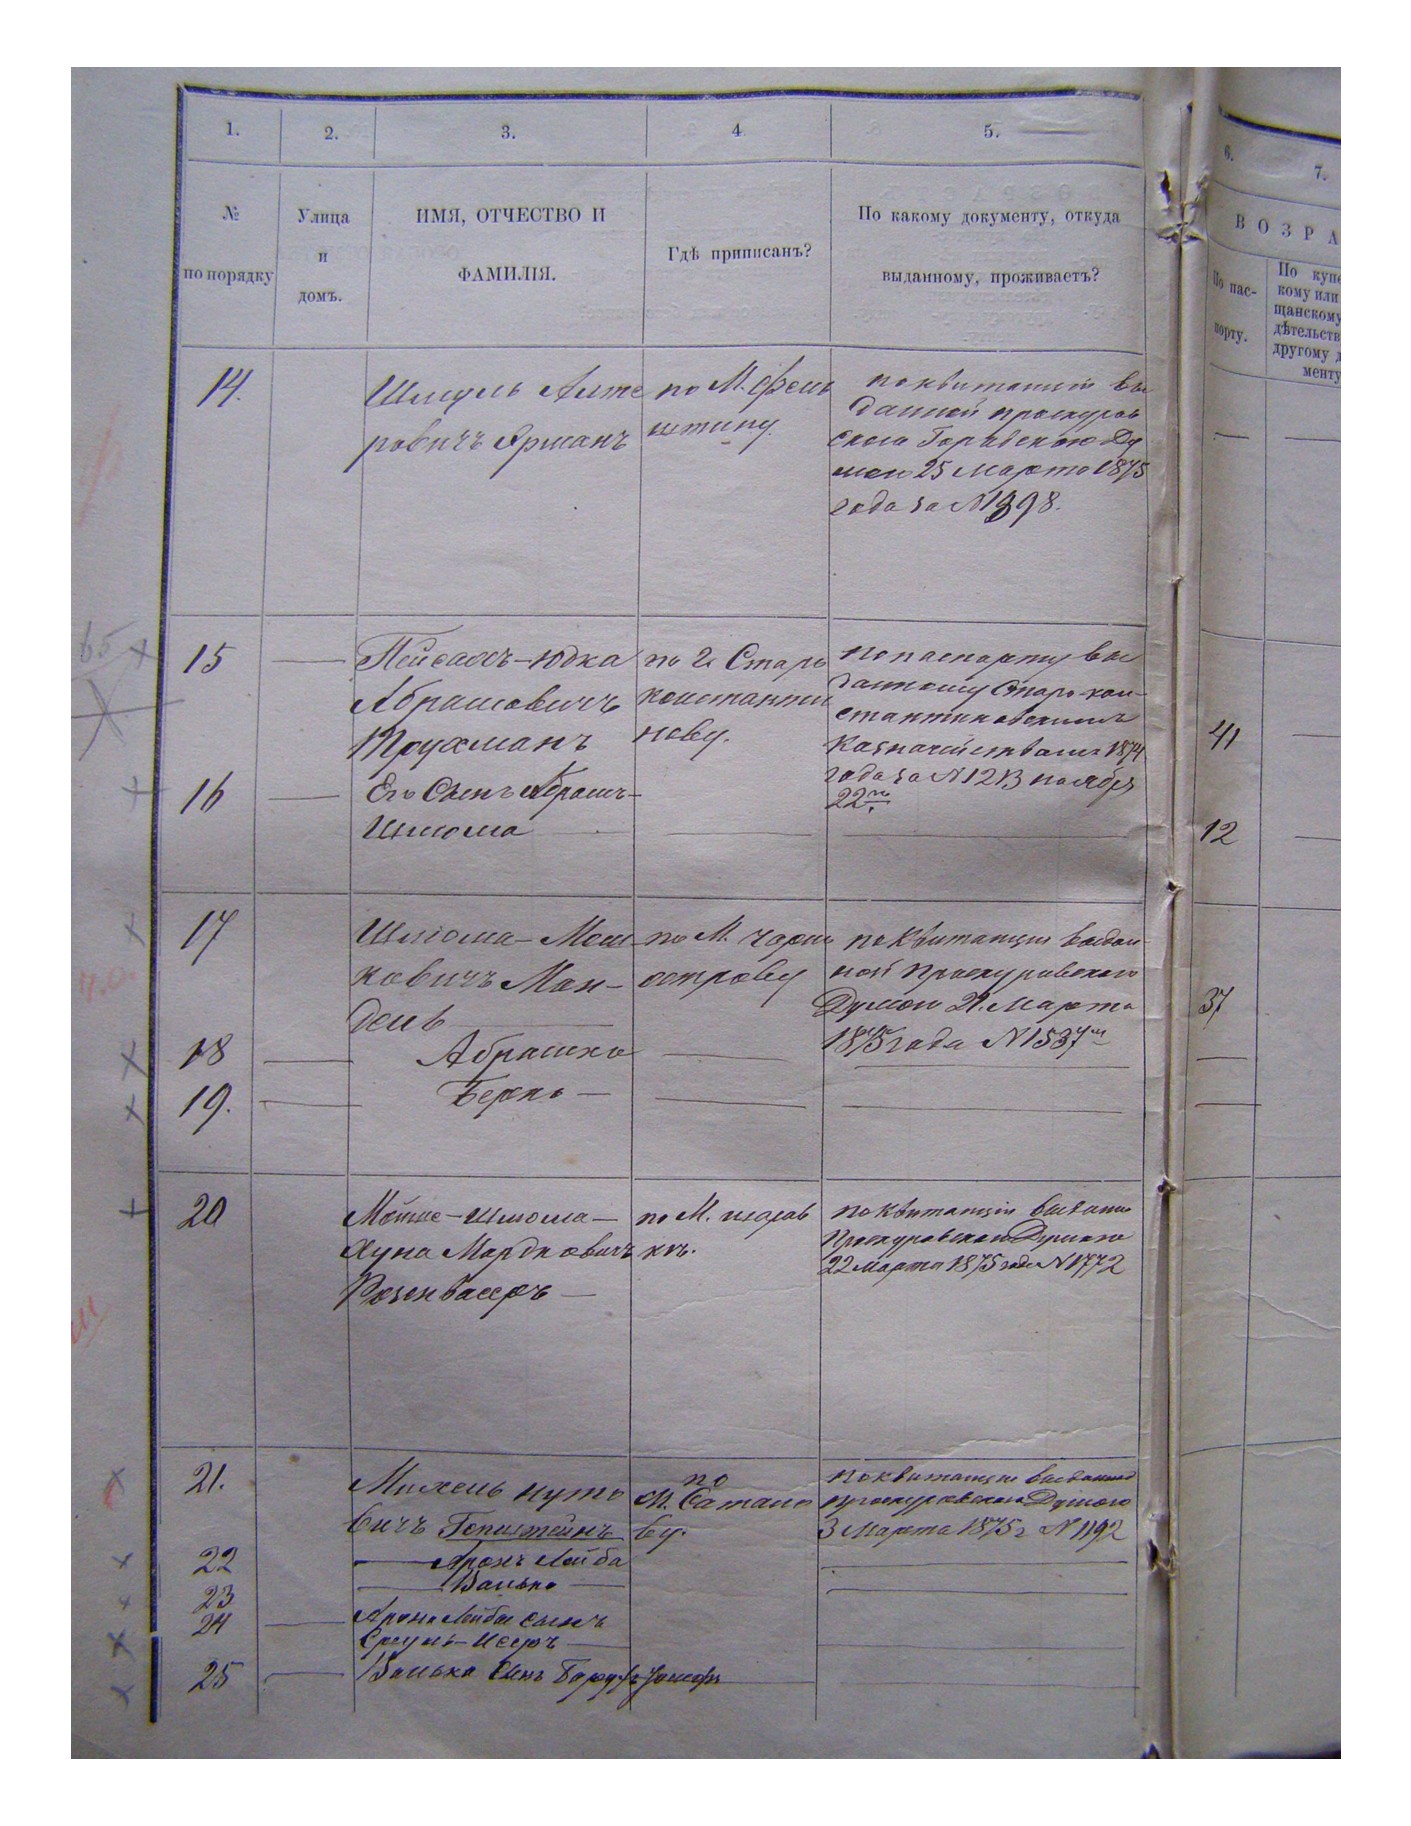 1.
2.
3.
4
5.
6.
7.
№
по порядку
Улица
и
домъ.
ИМЯ, ОТЧЕСТВО И
ФАМИЛІЯ.
Гдѣ приписанъ?
По какому документу, откуда
выданному, проживаетъ?
ВОЗРА
По пас-
порту.
По купе
кому или
щанскому
дѣтельств
другому д
менту
14.
Шмуль Алте
ровичъ Ярманъ
по М. Фель
штину.
по квитанціи вы
данной проскуров
скою Городскою Ду
мою 25 Марта 1875
года за N 1398.
65
15
Пейсахъ-Юдка
Абрамовичъ
Трухманъ
по Г. Старо
константи
нову.
по паспорту вы
данному Старо-кон-
стантиновскимъ
Казначействомъ 1874
года за N 1213 ноября
22го
41
16
Его Сынъ Абрамъ-
Шлиома
12
17
Шлиома-Мош
ковичъ Ман-
дель
по М. Чорно
острову
по Квитанціи выдан-
ной Проскуровскою
Думою 21. Марта
1875 года N 1537
37
ч.о.
18
Абрамко
19.
Берко
20
Мотие-Шлиома-
Хуна Мордковичъ
Розенвассеръ
по М. шаров
къ.
по Квитанціи выданно
Проскуровскою Думою
22 Марта 1875 года N 1772
21.
Михель Нуто
вичъ Гепштейнъ
по
М. Сатано
ву.
по квитанціи выданной
проскуровскою Думою
3 Марта 1875 г N 1192
22
Аронъ Лейба
23
Валько
24
Арона Лейбы сынъ
Сруль-Исеръ
25
Валька Сынъ Борухъ Іосифъ